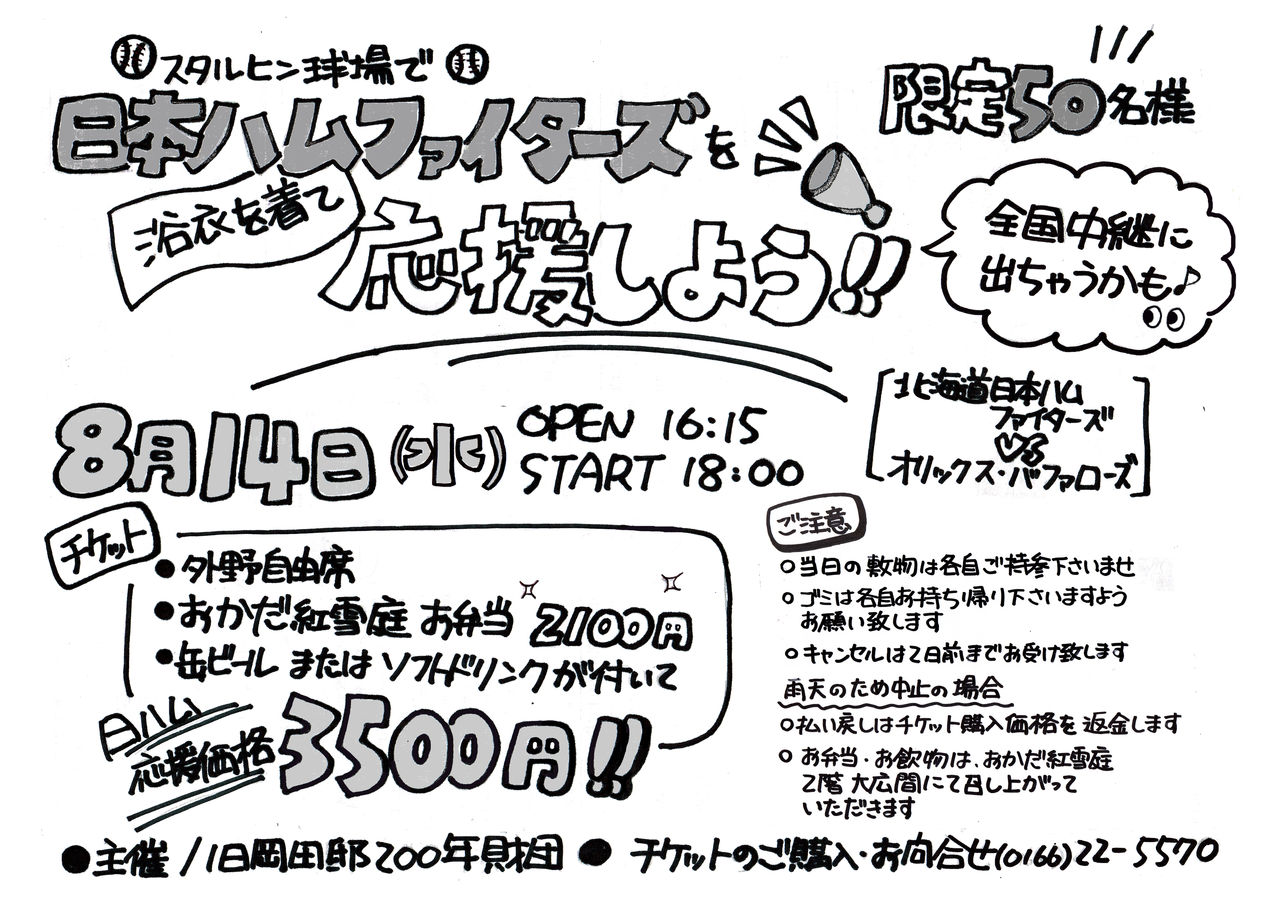 スタルヒン球場で
日本ハムファイターズを
浴衣を着て
応援しよう!!
限定50名様
全国中継に
出ちゃうかも♪
8月14日(水)
OPEN 16:15
START 18:00
北海道日本ハム
ファイターズ
VS
オリックス・バファローズ
チケット
●外野自由席
●おかだ紅雪庭 お弁当 2100円
●缶ビール または ソフトドリンクが付いて
日ハム
応援価格
3500円!!
ご注意
○当日の敷物は各自ご持参下さいませ
○ゴミは各自お持ち帰り下さいますよう
お願い致します
○キャンセルは2日前までお受け致します
雨天のため中止の場合
○払い戻しはチケット購入価格を返金します
○お弁当・お飲物は、おかだ紅雪庭
2階 大広間にて召し上がって
いただきます
●主催/旧岡田邸200年財団 ●チケットのご購入・お問合せ(0166)22-5570